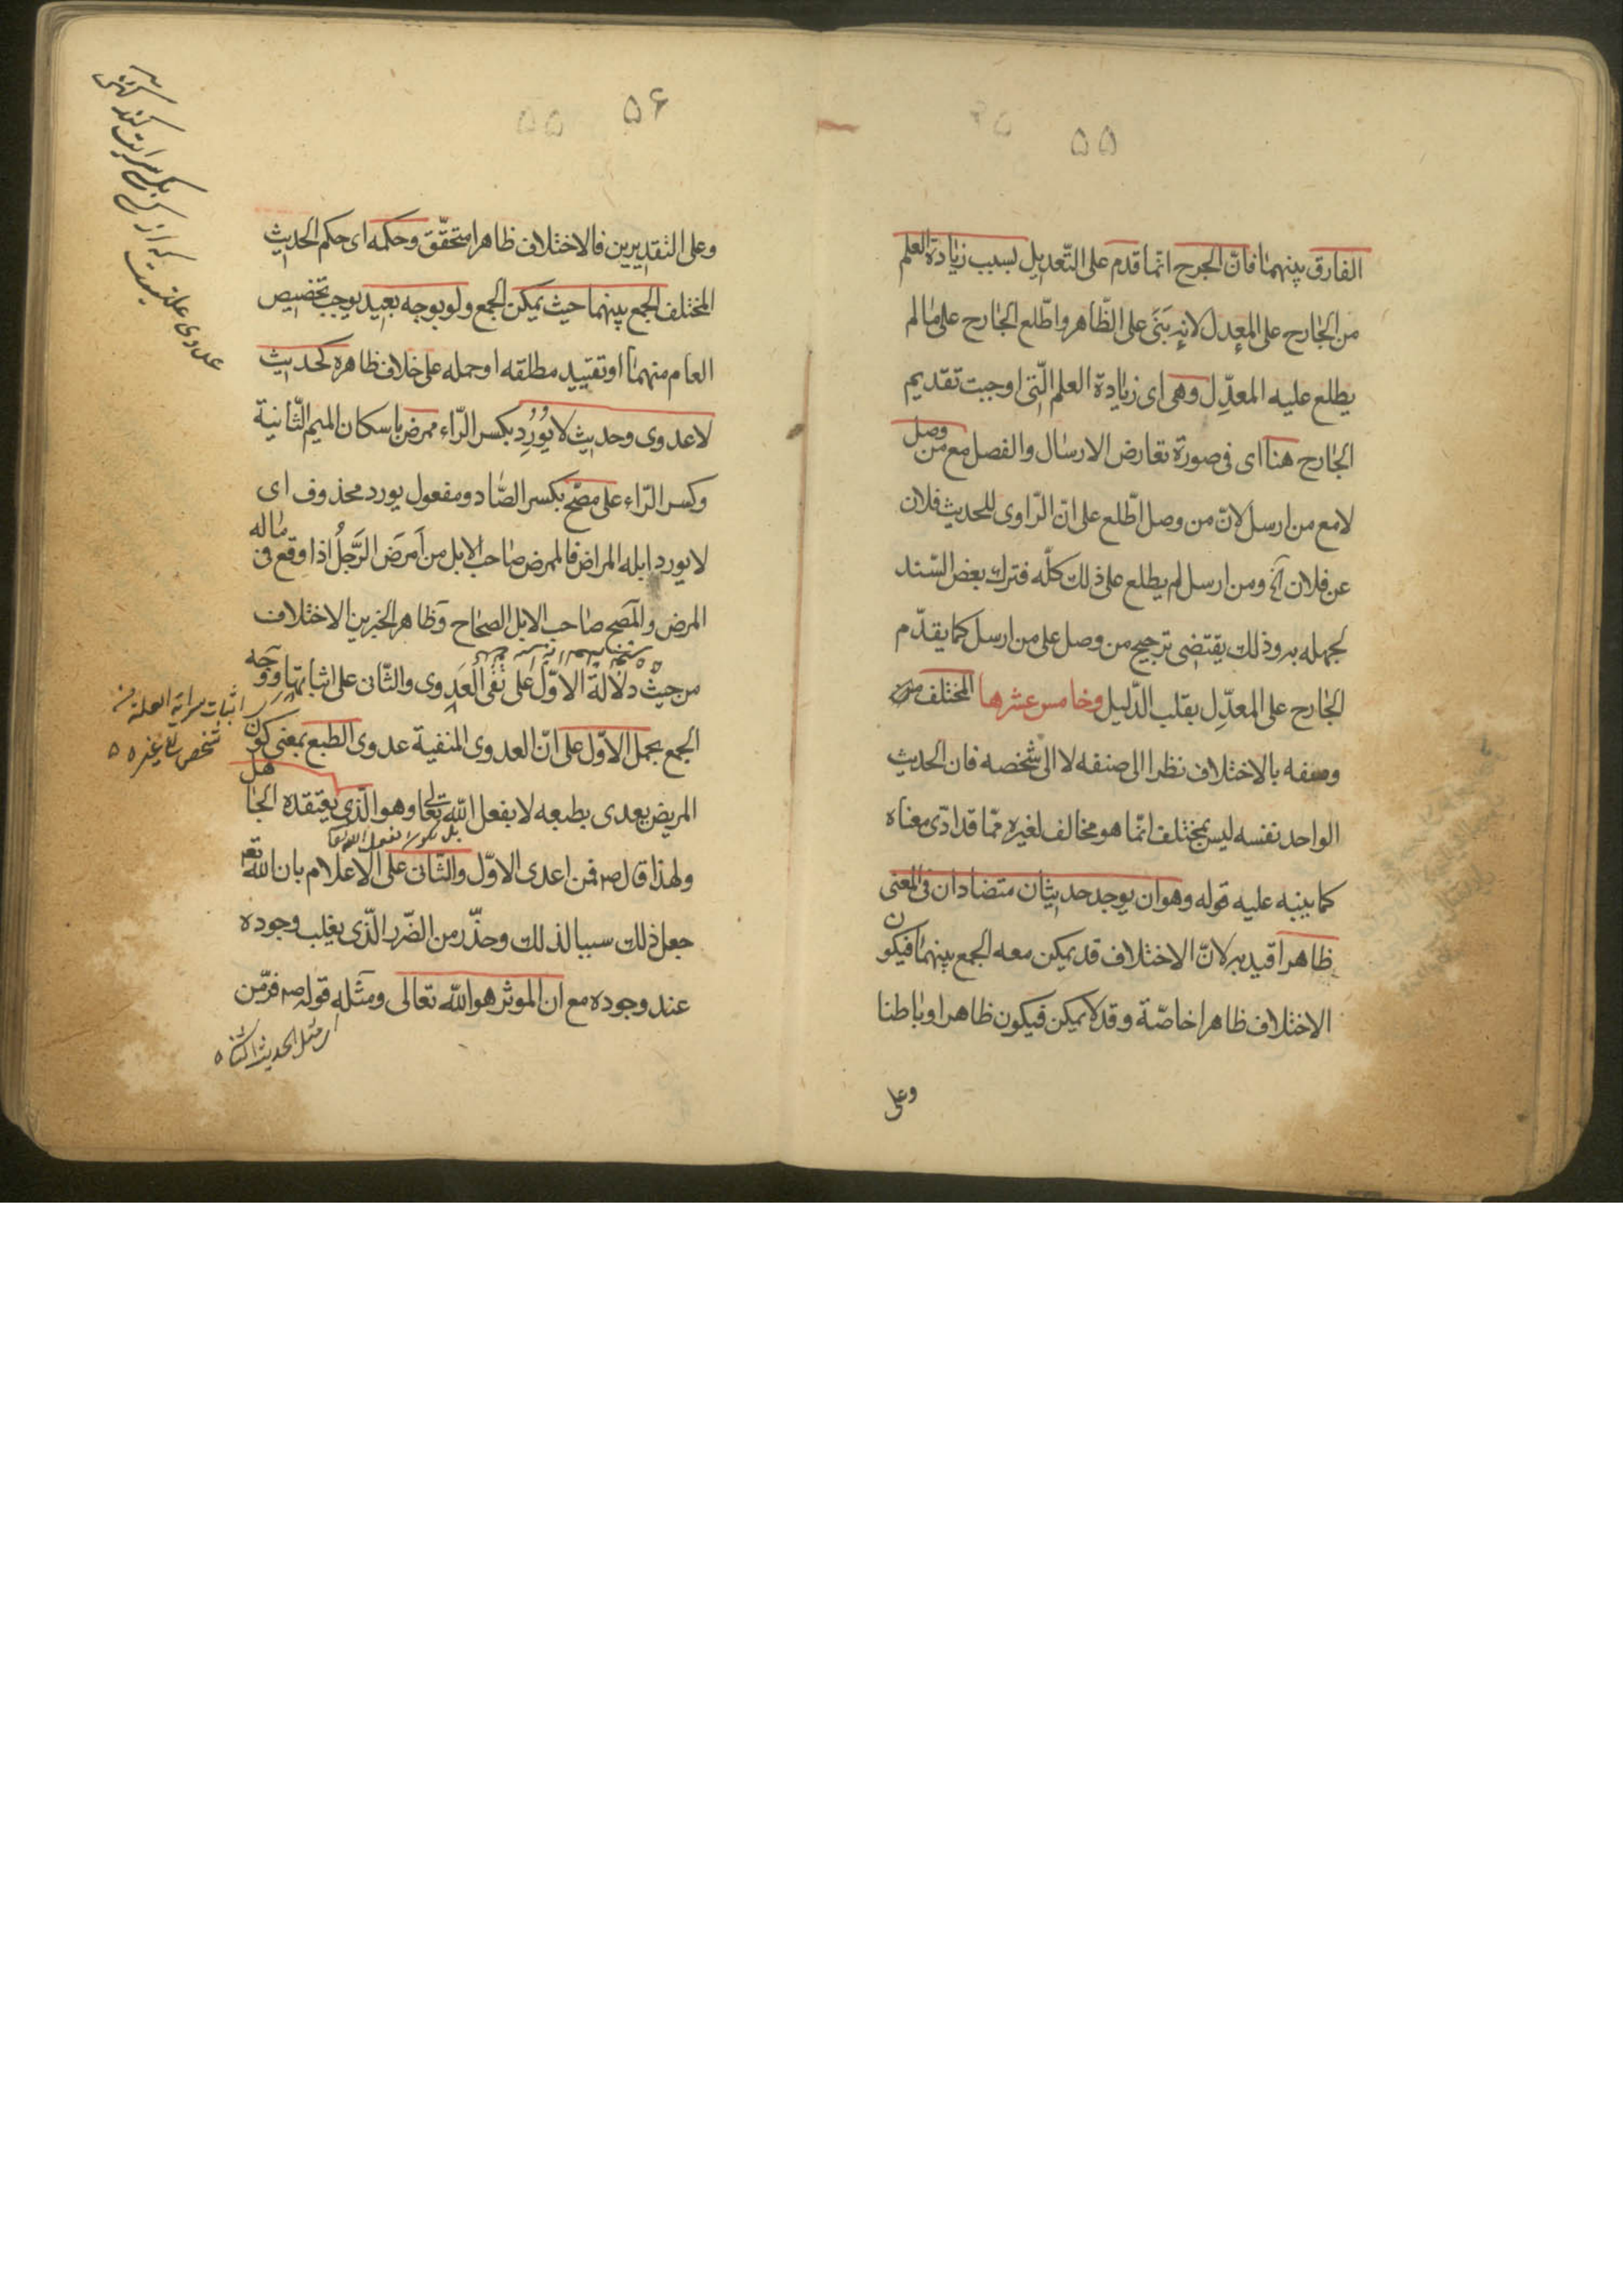 ۵۵
الفارق بينهما فانّ الجرح انّما قدم على التّعديل لسبب زيادة العلم
من الجارح على المعدل لانه بَنَى على الظّاهر واطّلع الجارح على ما لم
يطلع عليه المعدِّل وهى اى زيادة العلم الّتى اوجبت تقديم
الجارح هنا اى فى صورة تعارض الارسال والفصل مع من وصل
لا مع من ارسل لانّ من وصل اطّلع على انّ الرّاوى للحديث فلان
عن فلان آخ ومن ارسل لم يطلع على ذلك كلّه فترك بعض السّند
لجهله به وذلك يقتضى ترجيح من وصل على من ارسل كما يقدّم
الجارح على المعدِّل بقلب الدّليل وخامس عشرها المختلف
وصفه بالاختلاف نظرا الى صنفه لا الى شخصه فان الحديث
الواحد نفسه ليس بمختلف انّما هو مخالف لغيره ممّا قد ادّى معناه
كما ينبه عليه قوله وهو ان يوجد حديثان متضادان فى المعنى
ظاهرا قيد به لانّ الاختلاف قد يمكن معه الجمع بينهما فيكون
الاختلاف ظاهرا خاصّة وقد لا يمكن فيكون ظاهرا وباطنا
وعلى
۵۶
وعلى التقديرين فالاختلاف ظاهرا متحقّق وحكمه اى حكم الحديث
المختلف الجمع بينهما حيث يمكن الجمع ولو بوجه بعيد يوجب تخصيص
العام منهما او تقييد مطلقه او حمله على خلاف ظاهره كحديث
لاعدوى وحديث لا يُورِد بكسر الرّاء ممرض باسكان الميم الثّانية
وكسر الرّاء على مصّح بكسر الصّاد ومفعول يورد محذوف اى
لا يورد ابله المراض فالممرض صاحب الابل من اَمرَض الرَّجلُ اذا وقع فى ماله
المرض والمصح صاحب الابل الصحاح وظاهر الخبرين الاختلاف
من حيث دلالة الاوّل على نفى العدوى والثّانى على اثباتها ووجه
الجمع بحمل الاوّل على انّ العدوى المنفية عدوى الطبع بمعنى كون
المريض يعدى بطبعه لا بفعل اللّه تعالى وهو الّذى يعتقده الجاهل
ولهذا قال ص فمن اعدى الاوّل والثّانى على الاعلام بان اللّه تع
جعل ذلك سببا لذلك وحذّر من الضّرر الّذى يغلب وجوده
عند وجوده مع ان الموثر هو اللّه تعالى ومثله قوله ص فرّ من
اثبات سراية العلة من
شخص الى غيره ه